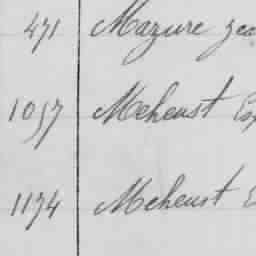 471 Mazure
1057 Meheust
1174 Meheust